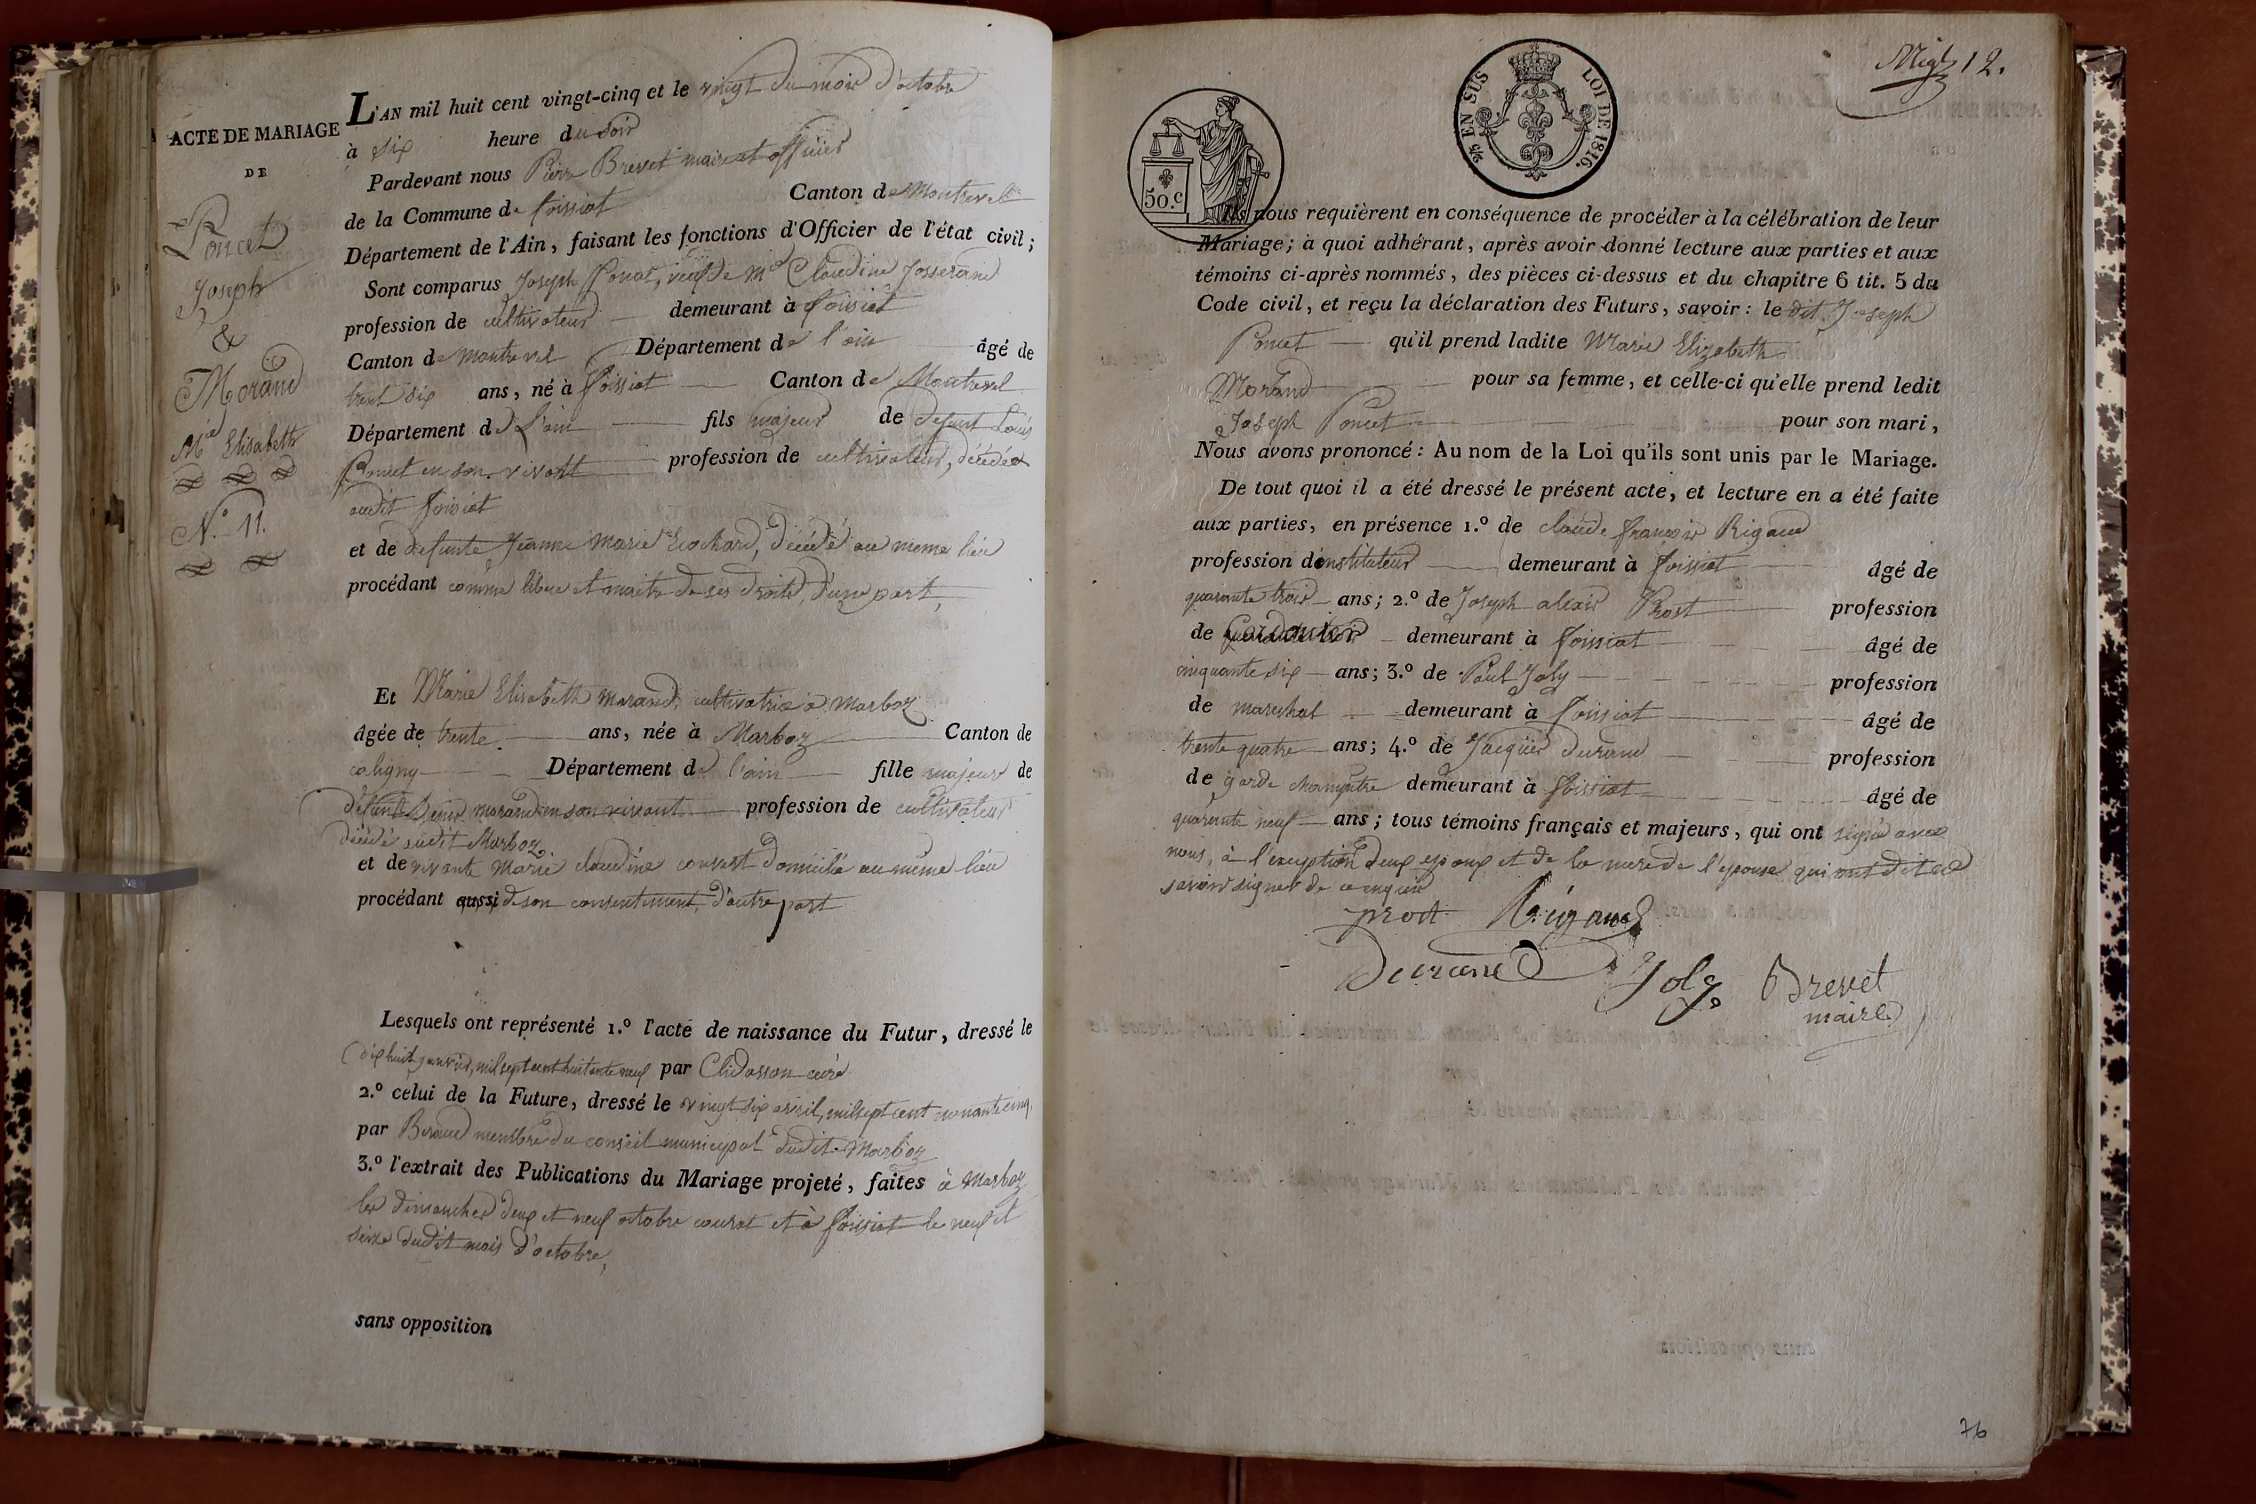 ACTE DE MARIAGE
DE
Poncet
Joseph
&
Morand
Mie Elisabeth
N.° 11.
L'AN mil huit cent vingt-cinq et le vingt du mois d'octobre
à six heure du soir
Pardevant nous Pierre Brevet maire et officier
de la Commune de foissiat Canton de Montrevel
Département de l'Ain, faisant les fonctions d'Officier de l'état civil ;
Sont comparus Joseph Poncet, veuf de Mie Claudine Josserand
profession de cultivateur demeurant à foissiat
Canton de montrevel Département de l'ain âgé de
trente six ans, né à foissiat Canton de Montrevel
Département de L'ain fils majeur de defunt Louis
Poncet en son vivant profession de cultivateur, décédé
audit foissiat
et de defunte Jeanne Marie Cochard, décédé au meme lieu
procédant comme libre et maitre de ses droits, d'une part,
Et Marie Elisabeth Morand, cultivatrice à Marboz
âgée de trente ans, née à Marboz Canton de
coligny Département de l'ain fille majeure de
défunt Denis morand en son vivant profession de cultivateur
décédé audit Marboz
et de vivante Marie claudine convert domicilié au même lieu
procédant aussi de son consentiment, d'autre part
Lesquels ont représenté 1.° l'acte de naissance du Futur, dressé le
dix huit janvier, mil sept cent huitante neuf par Chidasson curé
2.° celui de la Future, dressé le vingt six avril, mil sept cent nonante cinq,
par Beraud membre du conseil municipal dudit Marboz
3.° l'extrait des Publications du Mariage projeté, faites à Marboz
les dimanches deux et neuf octobre courat et à foissiat le neuf et
seize dudit mois d'octobre,
sans opposition
Migt 12.
50.c
2/5 EN SUS LOI DE 1816.
Ils nous requièrent en conséquence de procéder à la célébration de leur
Mariage ; à quoi adhérant, après avoir donné lecture aux parties et aux
témoins ci-après nommés, des pièces ci-dessus et du chapitre 6 tit. 5 du
Code civil, et reçu la déclaration des Futurs, savoir : le dit Joseph
Poncet qu'il prend ladite Marie Elizabeth
Morand pour sa femme, et celle-ci qu'elle prend ledit
Joseph Poncet pour son mari,
Nous avons prononcé : Au nom de la Loi qu'ils sont unis par le Mariage.
De tout quoi il a été dressé le présent acte, et lecture en a été faite
aux parties, en présence 1.° de claude françois Rigaud
profession d'institeteur demeurant à foissiat âgé de
quarante trois ans ; 2.° de Joseph alexis Prost profession
de Cordonier demeurant à foissiat âgé de
cinquante six ans ; 3.° de Paul Joly profession
de mareshal demeurant à foissiat âgé de
trente quatre ans ; 4.° de Jacques durand profession
de garde champêtre demeurant à foissiat âgé de
quarente neuf ans ; tous témoins français et majeurs, qui ont signé avec
nous, à l'exception deux epoux et de la mere de l'epouse qui ont dit ne
savoir signer de ce enquis
prost Rigaud
Durand Joly Brevet
maire
76